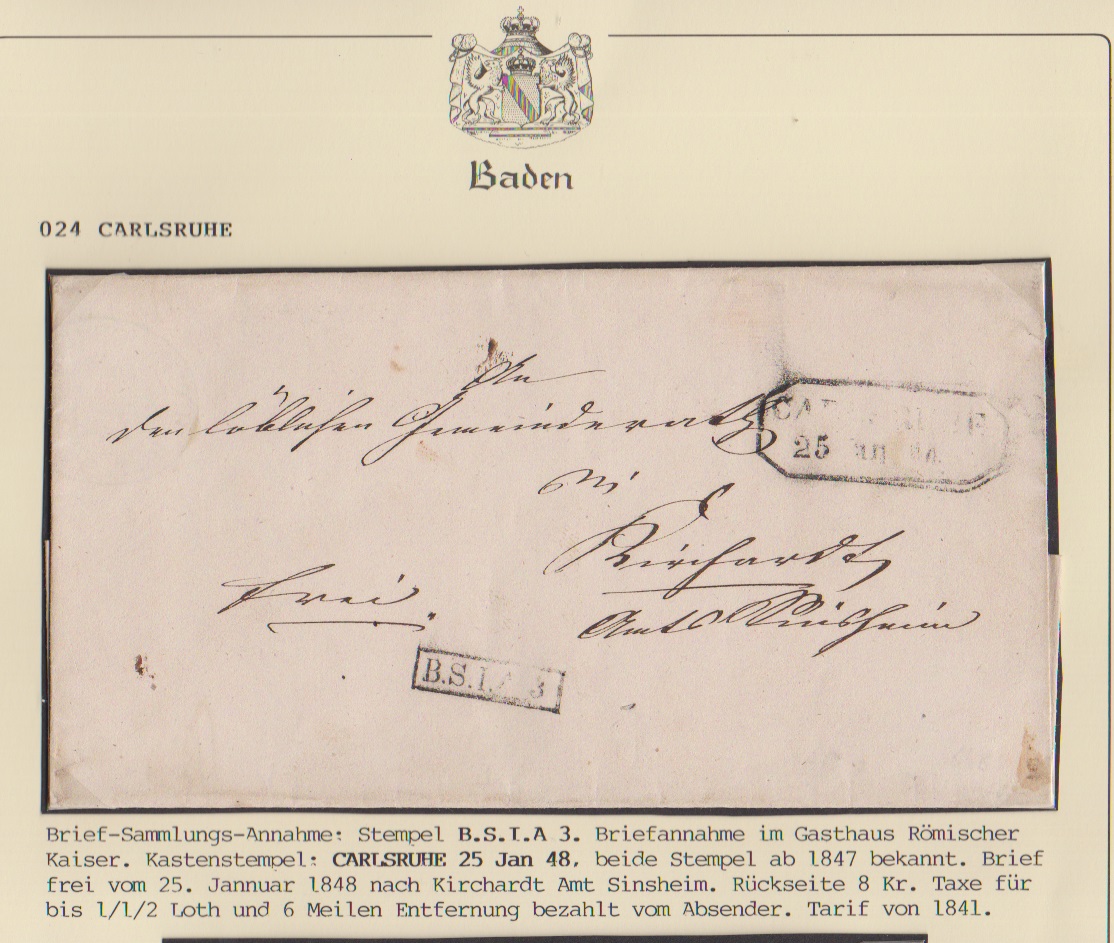 Baden
024 CARLSRUHE
An
den löblichen Gemeinderath
Kirchardt
frei
Amts Sinsheim
25
B.S.I.A 3
Brief-Sammlungs-Annahme: Stempel B.S.I.A 3. Briefannahme im Gasthaus Römischer
Kaiser. Kastenstempel: CARLSRUHE 25 Jan 48, beide Stempel ab 1847 bekannt. Brief
frei vom 25. Jannuar 1848 nach Kirchardt Amt Sinsheim. Rückseite 8 Kr. Taxe für
bis 1/1/2 Loth und 6 Meilen Entfernung bezahlt vom Absender. Tarif von 1841.